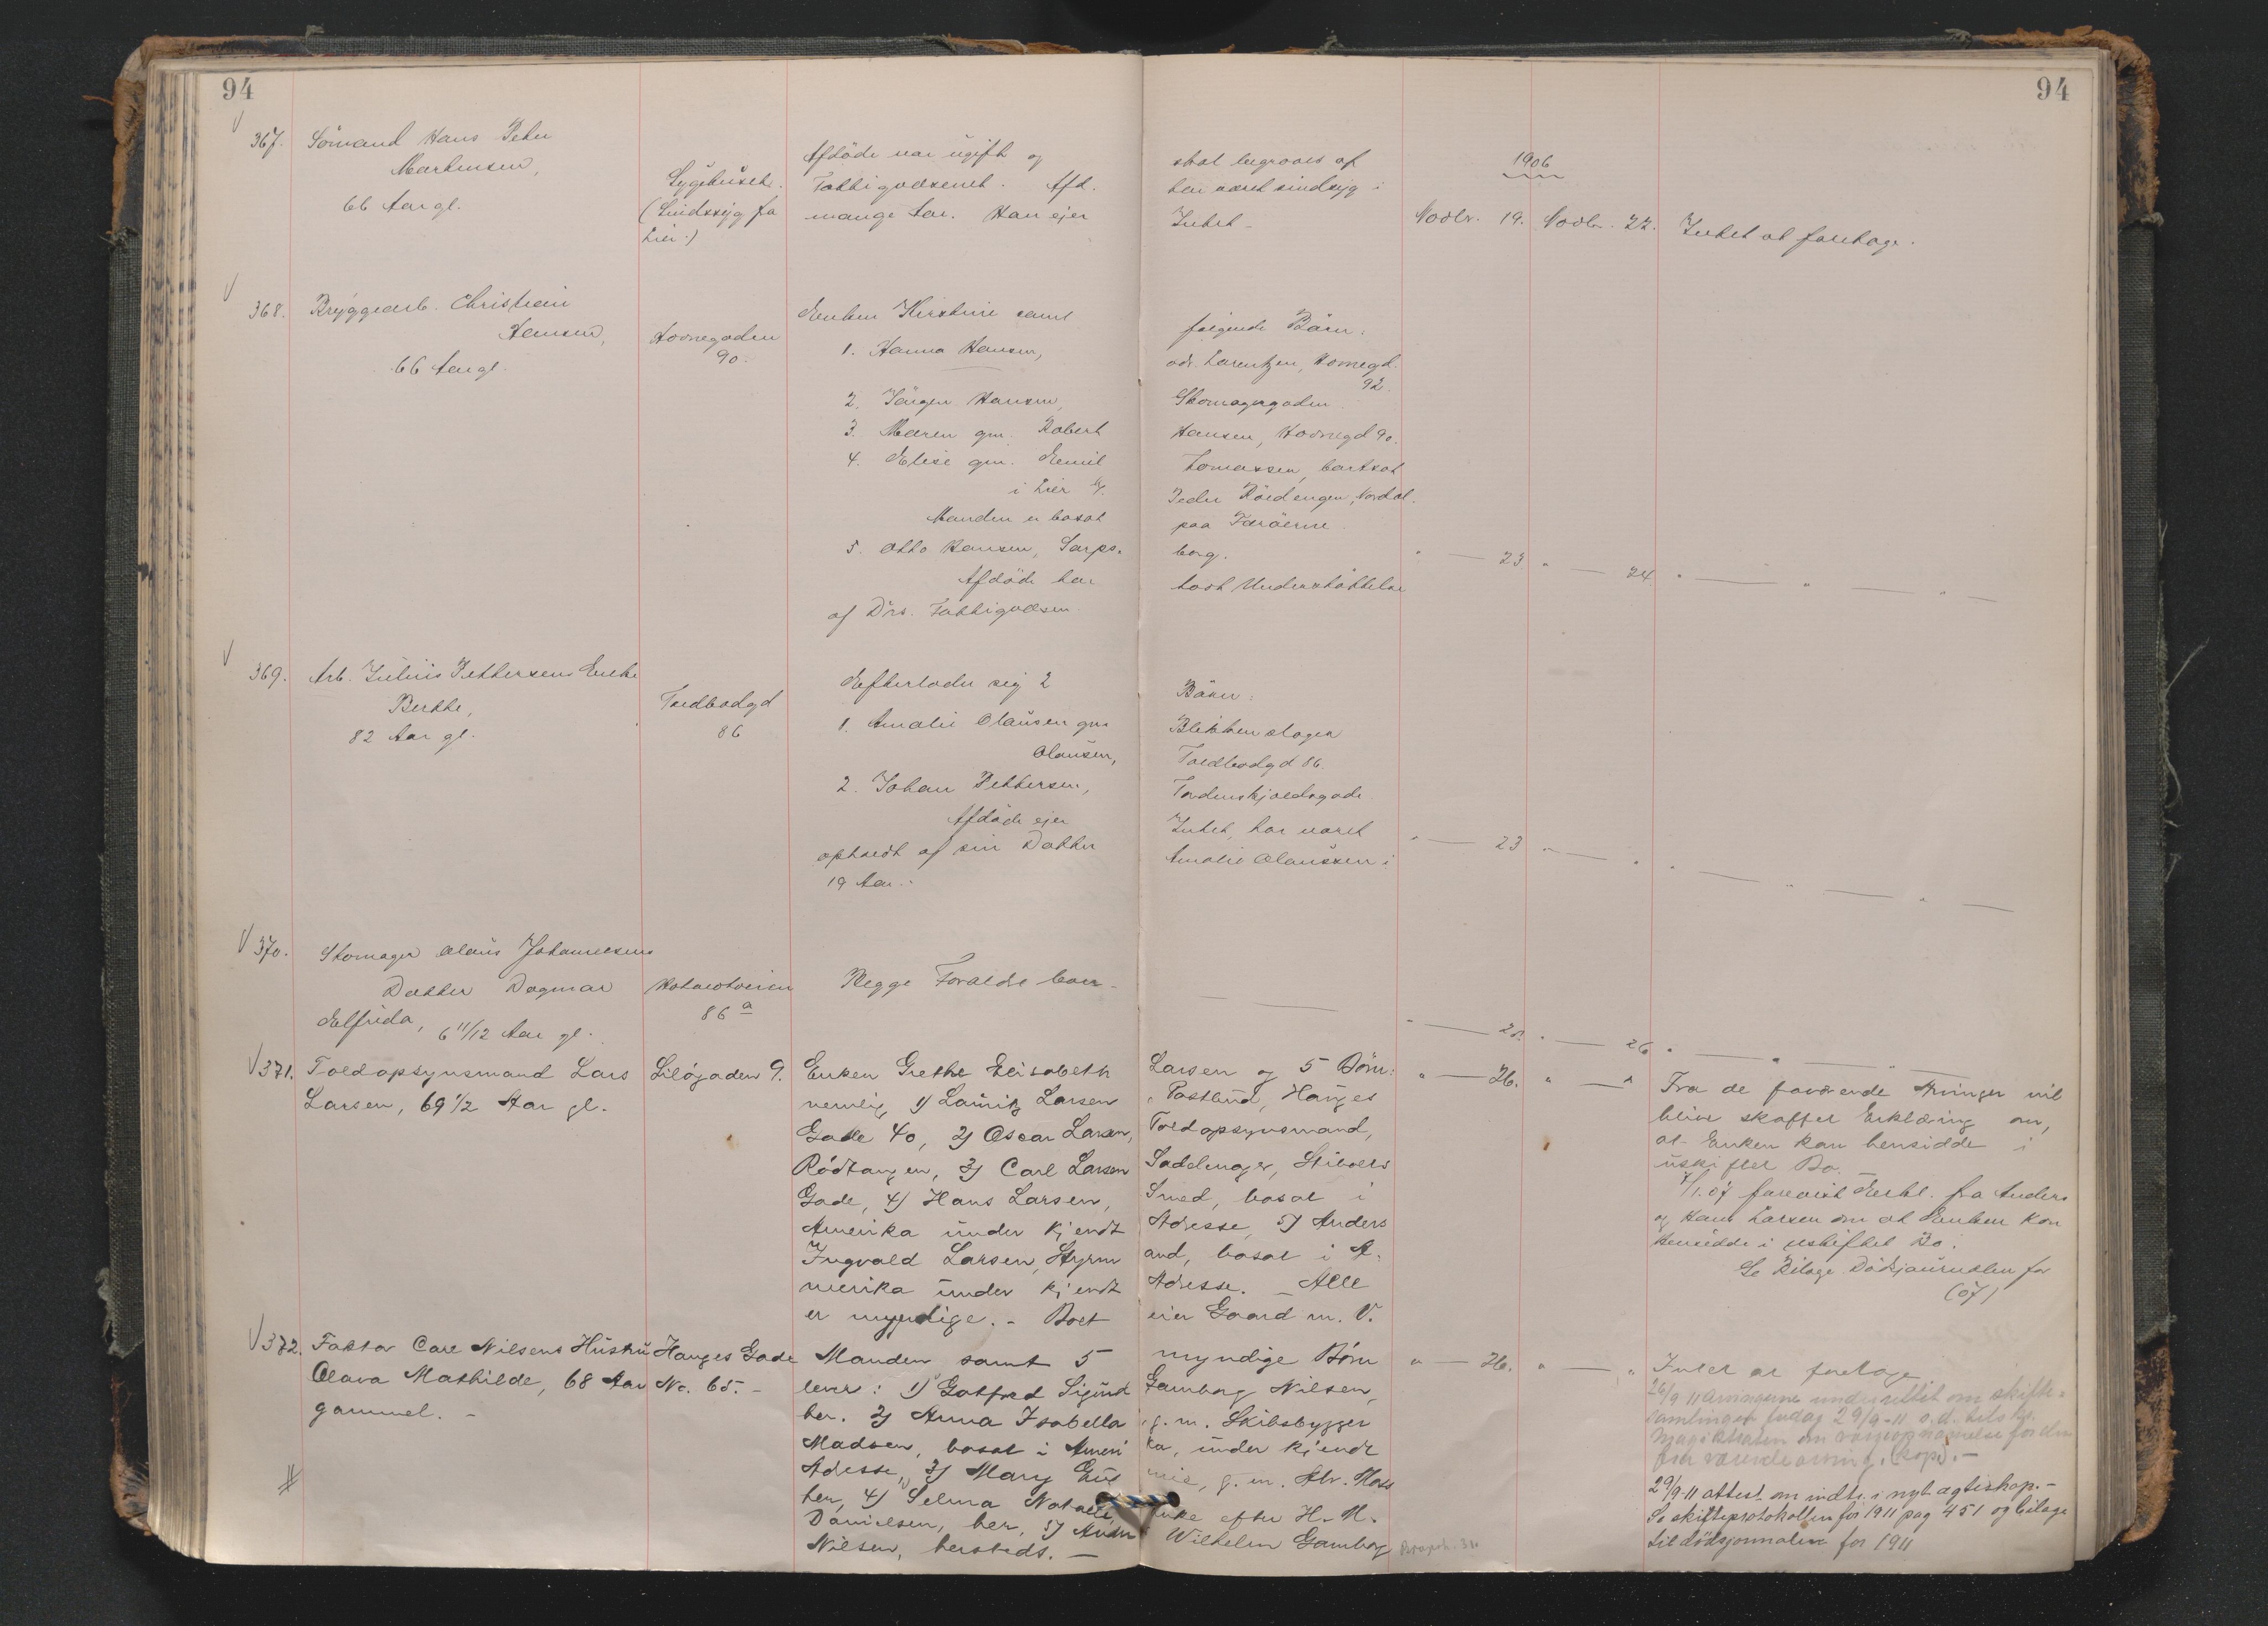 94
94
367. Sömand Hans Peter
Martinsen,
66 Aar gl.
Sygehuset.
(Sindssyg fra
Lier.)
Afdöde var ugift og skal begraves af
Fattigvæsenet. Afd. har været sindssyg i
mange Aar. Han ejer Intet.
1906
Novbr. 19. Novbr. 22. Intet at foretage.
368. Bryggearb. Christian
Hansen,
66 Aar gl.
Havnegaden
90.
Enken Kirstine samt følgende Börn:
1. Hanna Hansen, adr. Larentzen, Havnegd.
92.
2. Jörgen Hansen, Skomagergaden
3. Maren gm. Robert Hansen, Havnegd 90.
4. Elise gm. Emil Tomassen, bortsat
i Lier
Manden er bosat paa Færöerne.
5. Otto Hansen, Sarpsborg.
Afdöde har havt Understöttelse
af Drs. Fattigvæsen.
" — 23 " — 24 " — " — " —
369. Arb. Julius Pettersens Enke
Berthe,
82 Aar gl.
Toldbodgd
86
Efterlader sig 2 Börn:
1. Amalie Olausen gm Blikkenslager
Olausen, Toldbodgd 86.
2. Johan Pettersen, Tordenskjoldsgade
Afdöde ejer Intet, har været
opholdt af sin Datter Amalie Olaussen i
19 Aar.
" — 23 " — " " — " — " —
370. Skomager Olaus Johannesens
Datter Dagmar
Elfrida, 6 11/12 Aar gl.
86 a
Begge Forældre lever.
" — " — 26 " — " — " —
371. Toldopsynsmand Lars
Larsen, 69 1/2 Aar gl.
Lilögaden 9.
Enken Grethe Elisabeth Larsen og 5 Börn:
nemlig, 1) Lauritz Larsen, Postbud, Hauges
Gade 40, 2) Oscar Larsen, Toldopsynsmand,
Rödtangen, 3) Carl Larsen Sadelmager, Stibolts
Gade, 4) Hans Larsen, Smed, bosat i
Amerika under kjendt Adresse, 5) Anders
Ingvald Larsen, Styrmand, bosat i A-
merika under kjendt Adresse. — Alle
er myndige. - Boet eier Gaard m. V.
" — 26. " — "
Fra de fraværende Arvinger vil
blive skaffet Erklæring om,
at Enken kan hensidde i
uskiftet Bo. —
7/1.07 forevist Erkl. fra Anders
og Hans Larsen om at Enken kan
hensidde i uskiftet Bo.
Se Bilage Dödsjournalen for
(07)
372. Faktor Carl Nilsens Hustru
Olava Mathilde, 68 Aar
gammel. —
Hauges Gade
No. 65. -
Manden samt 5 myndige Börn
lever: 1) Gotfred Sigurd Gamborg Nilsen,
her. 2) Anna Isabella g. m. Skibsbygger
Madsen, bosat i Amerika, under kjendt
Adresse, 3) Mary g. m. Alr. Moss
her, 4) Selma Natalie, Enke efter H. M.
Danielsen, her, 5) Wilhelm Gamborg
Nilsen, hersteds. —
" — 26. " — "
Intet at foretage
26/9 11 Arvingerne underrettet om skifte-
samlingen fredag 29/9-11 s.d. tilskr.
Magistraten om værgeopnævnelse for den
fraværende arving. (kopi). —
29/9-11 attest om indtr. i nyt ægteskap. —
Se skifteprotokollen for 1911 pag 451 og bilage
til dödsjournalen for 1911